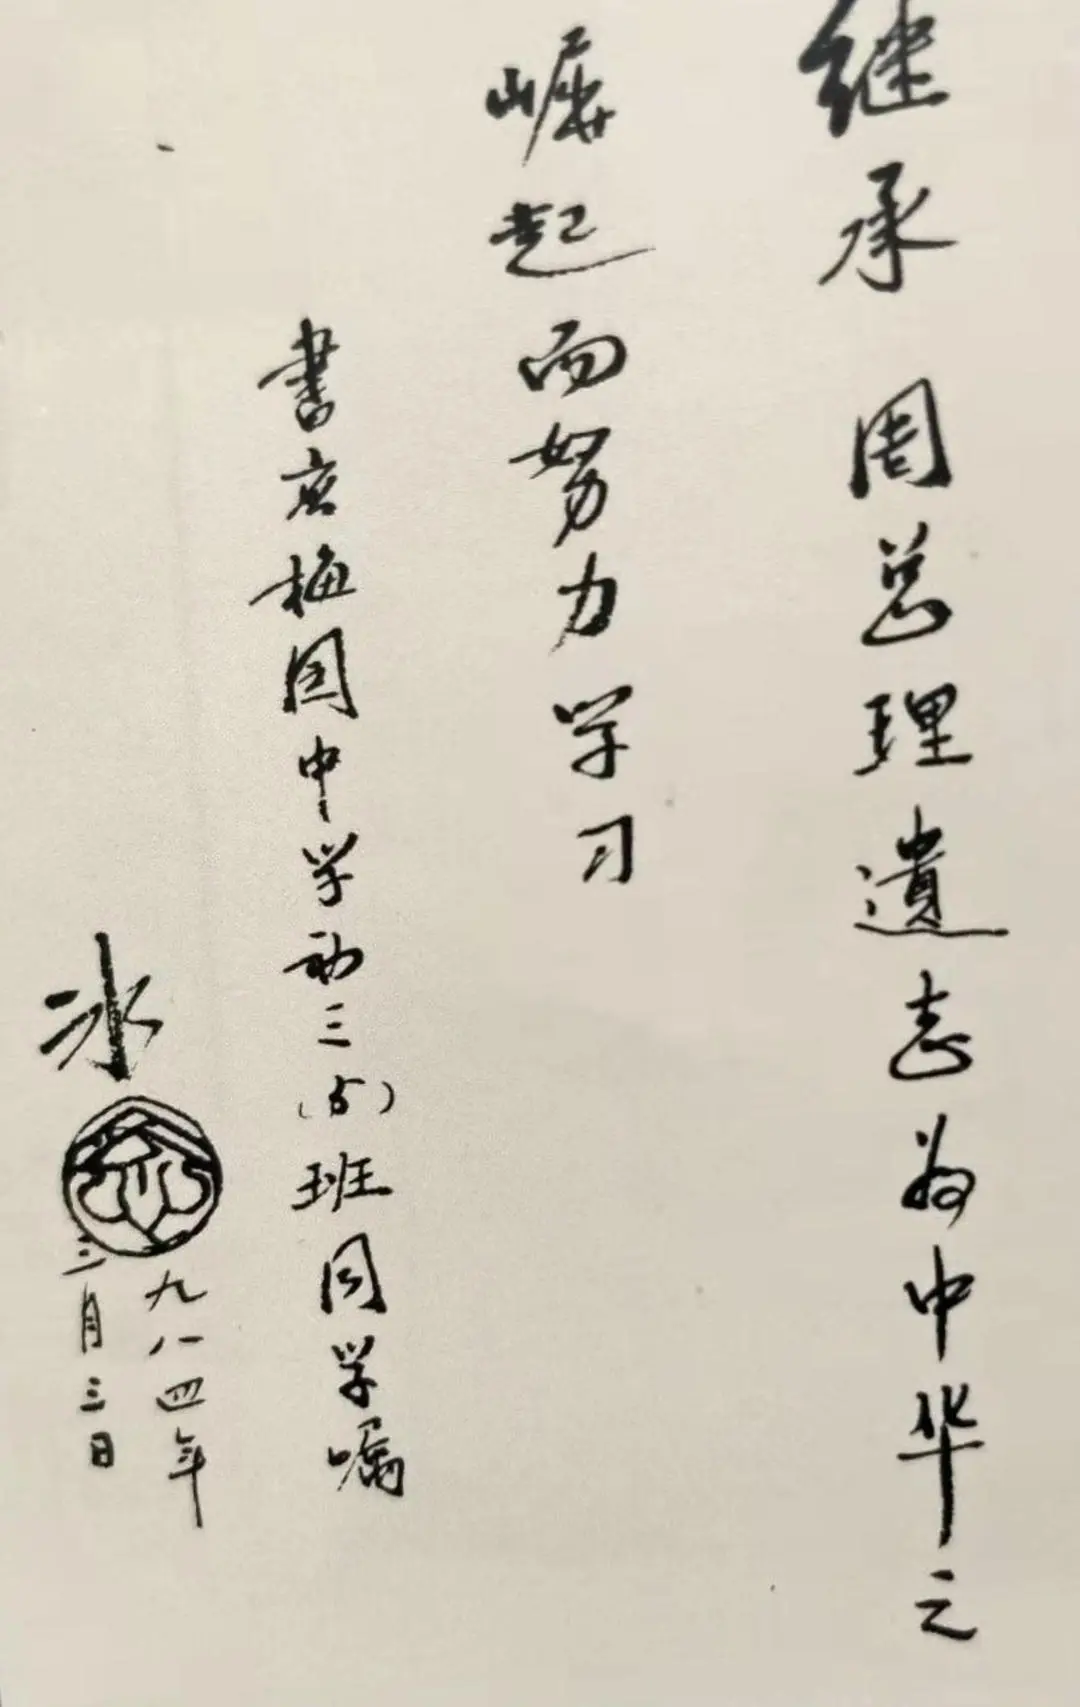 继承 周总理遺志为中华之
崛起而努力学习
書应梅园中学初三(五)班同学嘱
冰
九八四年
三月三日